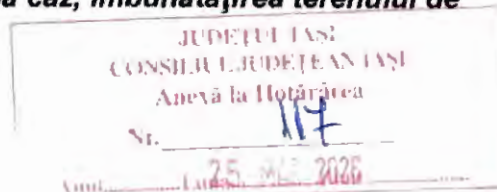 caz, îmbunătățirea terenului de
JUDEȚUL IAȘI
CONSILIUL JUDEȚEAN IAȘI
Anexă la Hotărârea
Nr. 117
25 2026